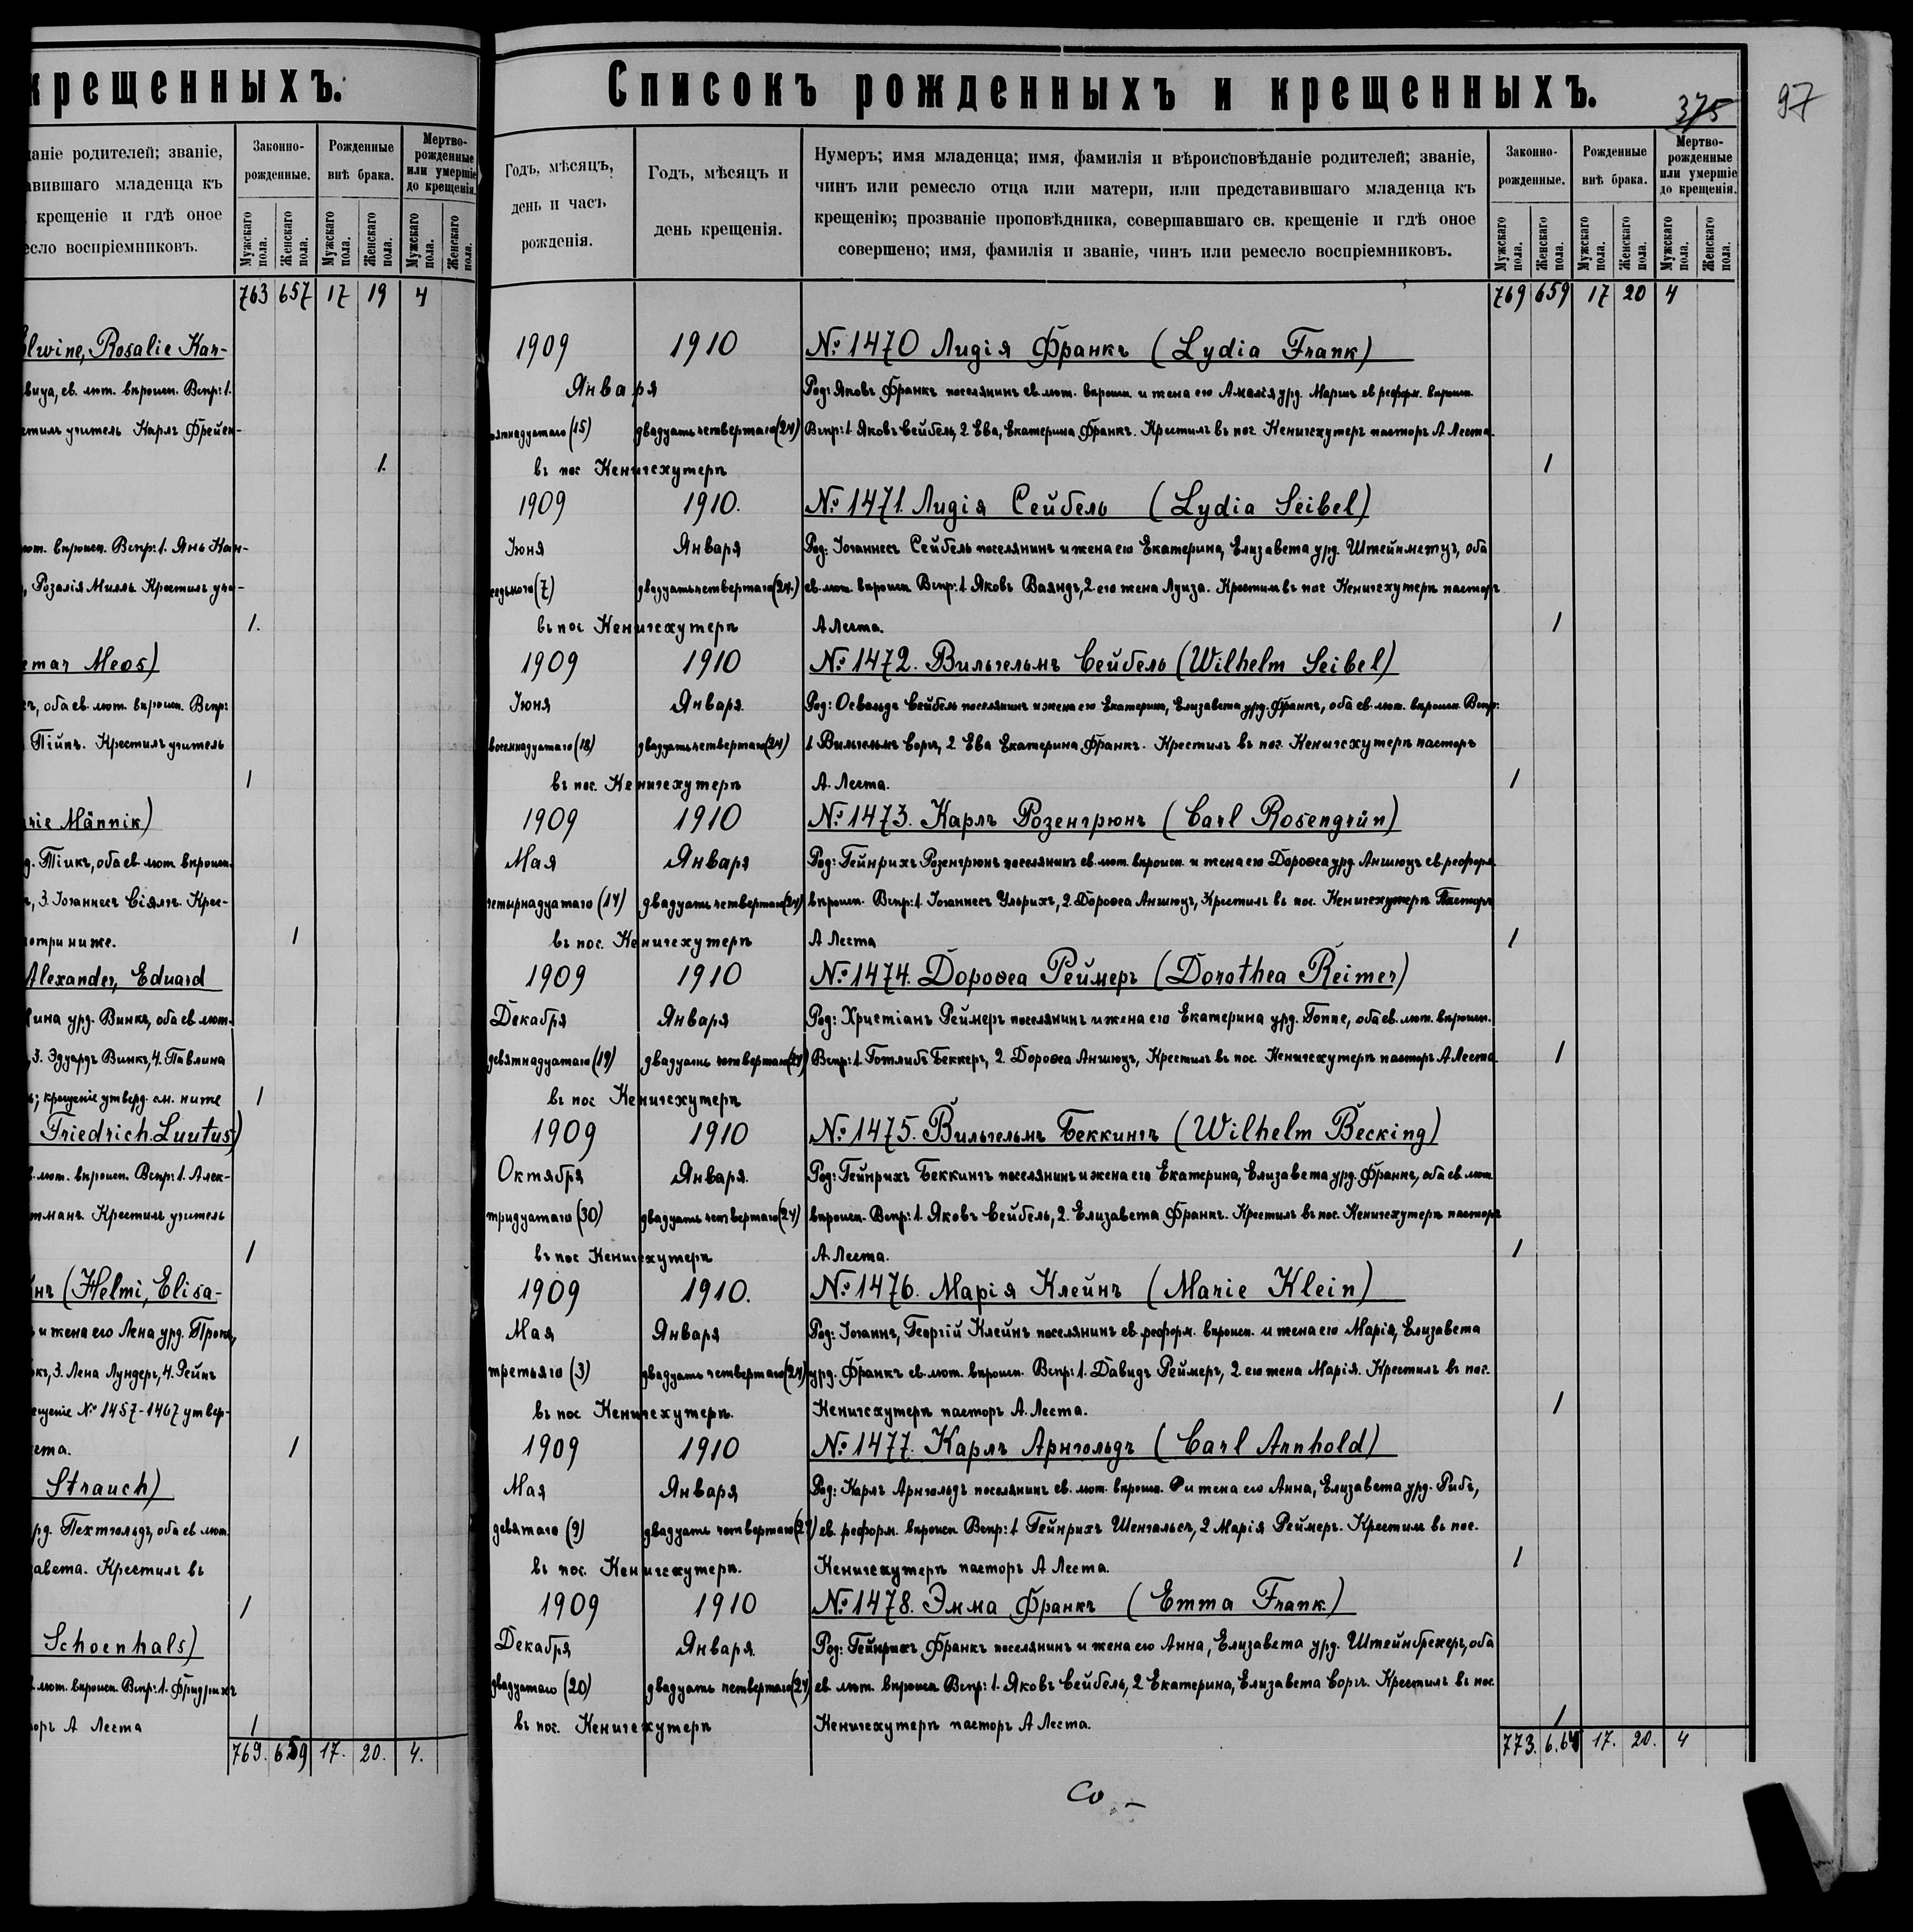 крещенныхъ.
даніе родителей; званіе,
авившаго младенца къ
крещеніе и гдѣ оное
есло воспріемниковъ.
Законно-
рожденные.
Рожденные
внѣ брака.
Мертво-
рожденные
или умершіе
до крещенія.
Мужскаго пола.
Женскаго пола.
Мужскаго пола.
Женскаго пола.
Мужскаго пола.
Женскаго пола.
763 657 17 19 4
lwine, Rosalie Kar-
вица, ев. лют. вѣроисп. Вспр: 1.
стилъ учитель Карлъ Фрейен-
1.
лют. вѣроисп. Вспр: 1. Янъ Кан-
, Розалія Милль Крестилъ учи-
1.
emar Meos)
ъ, оба ев. лют. вѣроисп. Вспр:
Пійпъ. Крестилъ учитель
1
rie Männik)
д. Тійкъ, оба ев. лют вѣроисп.
, 3. Іоганнесъ Сіялъ. Крес-
мотри ниже. 1
Alexander, Eduard
ина урд. Винкъ, оба ев лют.
, 3. Эдуардъ Винкъ, 4. Павлина
ъ; крещеніе утверд. см. ниже 1
Friedrich Luutus)
в. лют. вѣроисп. Вспр: 1. Алек-
тманъ. Крестилъ учитель
1
нъ (Helmi, Elisa-
ъ и жена его Лена урд.
къ, 3. Лена Лундеръ, 4. Рейнъ
ещеніе № 1457-1467 утвер-
еста. 1
Strauch)
урд. Пехтгольдъ, оба ев лют.
завета. Крестилъ въ
1
Schoenhals)
лют. вѣроисп. Вспр: 1. Фридрихъ
торъ А Леста 1
769. 659 17. 20. 4.
Списокъ рожденныхъ и крещенныхъ.
375
97
Годъ, мѣсяцъ,
день и часъ
рожденія.
Годъ, мѣсяцъ и
день крещенія.
Нумеръ; имя младенца; имя, фамилія и вѣроисповѣданіе родителей; званіе,
чинъ или ремесло отца или матери, или представившаго младенца къ
крещенію; прозваніе проповѣдника, совершавшаго св. крещеніе и гдѣ оное
совершено; имя, фамилія и званіе, чинъ или ремесло воспріемниковъ.
Законно-
рожденные.
Рожденные
внѣ брака.
Мертво-
рожденные
или умершіе
до крещенія.
Мужскаго пола.
Женскаго пола.
Мужскаго пола.
Женскаго пола.
Мужскаго пола.
Женскаго пола.
769 659 17 20 4
1909 1910 № 1470 Лидія Франкъ (Lydia Frank)
Января Род: Яковъ Франкъ поселянинъ ев. лют. вѣроисп. и жена его Амалія урд. Мартъ ев реформ. вѣроисп.
пятнадцатаго (15) двадцать четвертаго (24) Вспр: 1. Яковъ Сейбель, 2 Ева, Екатерина Франкъ. Крестилъ въ пос Кенигсхутерѣ пасторъ А Леста.
въ пос Кенигсхутерѣ 1
1909 1910. № 1471. Лидія Сейбель (Lydia Seibel)
Іюня Января Род: Іоганнесъ Сейбель поселянинъ и жена его Екатерина, Елизавета урд. Штейнметцъ, оба
седьмого (7) двадцать четвертаго (24.) ев. лют. вѣроисп Вспр: 1 Яковъ Ваяндъ, 2. его жена Луиза. Крестилъ въ пос Кенигсхутерѣ пасторъ
въ пос. Кенигсхутерѣ А Леста. 1
1909 1910 № 1472. Вильгельмъ Сейбель (Wilhelm Seibel)
Іюня Января. Род: Освальдъ Сейбель поселянинъ и жена его Екатерина, Елизавета урд. Франкъ, оба ев. лют. вѣроисп. Вспр:
восемнадцатаго (18) двадцать четвертаго (24) 1 Вильгельмъ Соргъ, 2 Ева Екатерина Франкъ. Крестилъ въ пос. Кенигсхутерѣ пасторъ
въ пос. Кенигсхутерѣ А. Леста. 1
1909 1910 № 1473. Карлъ Розенгрюнъ (Carl Rosengrün)
Мая Января Род: Гейнрихъ Розенгрюнъ поселянинъ ев. лют. вѣроисп. и жена его Доровеа урд. Аншюцъ ев. реформ.
четырнадцатаго (14) двадцать четвертаго (24) вѣроисп. Вспр: 1. Іоганнесъ Ульрихъ, 2. Доровеа Аншюцъ, Крестилъ въ пос. Кенигсхутерѣ Пасторъ
въ пос. Кенигсхутерѣ А Леста 1
1909 1910 № 1474. Доровеа Реймеръ (Dorothea Reimer)
Декабря Января Род: Христіанъ Реймеръ поселянинъ и жена его Екатерина урд. Гоппе, оба ев. лют. вѣроисп.
девятнадцатаго (19) двадцать четвертаго (24) Вспр: 1. Готлибъ Беккеръ, 2. Доровеа Аншюцъ, Крестилъ въ пос. Кенигсхутерѣ пасторъ А Леста. 1
въ пос Кенигсхутерѣ
1909 1910 № 1475. Вильгельмъ Беккингъ (Wilhelm Becking)
Октября Января. Род: Гейнрихъ Беккингъ поселянинъ и жена его Екатерина, Елизавета урд. Франкъ, оба ев. лют.
тридцатаго (30) двадцать четвертаго (24) вѣроисп. Вспр: 1. Яковъ Сейбель, 2. Елизавета Франкъ. Крестилъ въ пос. Кенигсхутерѣ пасторъ
въ пос Кенигсхутерѣ А. Леста. 1
1909 1910. № 1476. Марія Клейнъ (Marie Klein)
Мая Января Род: Іоганнъ, Георгій Клейнъ поселянинъ ев. реформ. вѣроисп. и жена его Марія, Елизавета
третьяго (3) двадцать четвертаго (24) урд. Франкъ ев. лют. вѣроисп. Вспр: 1. Давидъ Реймеръ, 2. его жена Марія. Крестилъ въ пос.
въ пос Кенигсхутерѣ. Кенигсхутерѣ пасторъ А. Леста. 1
1909 1910 № 1477. Карлъ Арнгольдъ (Carl Arnhold)
Мая Января Род: Карлъ Арнгольдъ поселянинъ ев. лют. вѣроисп. и жена его Анна, Елизавета урд. Рибъ,
девятаго (9) двадцать четвертаго (24) ев. реформ. вѣроисп Вспр: 1 Гейнрихъ Шенгальсъ, 2 Марія Реймеръ. Крестилъ въ пос.
въ пос. Кенигсхутерѣ. Кенигсхутерѣ пасторъ А Леста. 1
1909 1910 № 1478. Эмма Франкъ (Emma Frank.)
Декабря Января. Род: Гейнрихъ Франкъ поселянинъ и жена его Анна, Елизавета урд. Штейнбрехеръ, оба
двадцатаго (20) двадцать четвертаго (24) ев. лют. вѣроисп Вспр: 1. Яковъ Сейбель, 2 Екатерина, Елизавета Соргъ. Крестилъ въ пос
въ пос. Кенигсхутерѣ Кенигсхутерѣ пасторъ А Леста. 1
773. 664 17. 20. 4